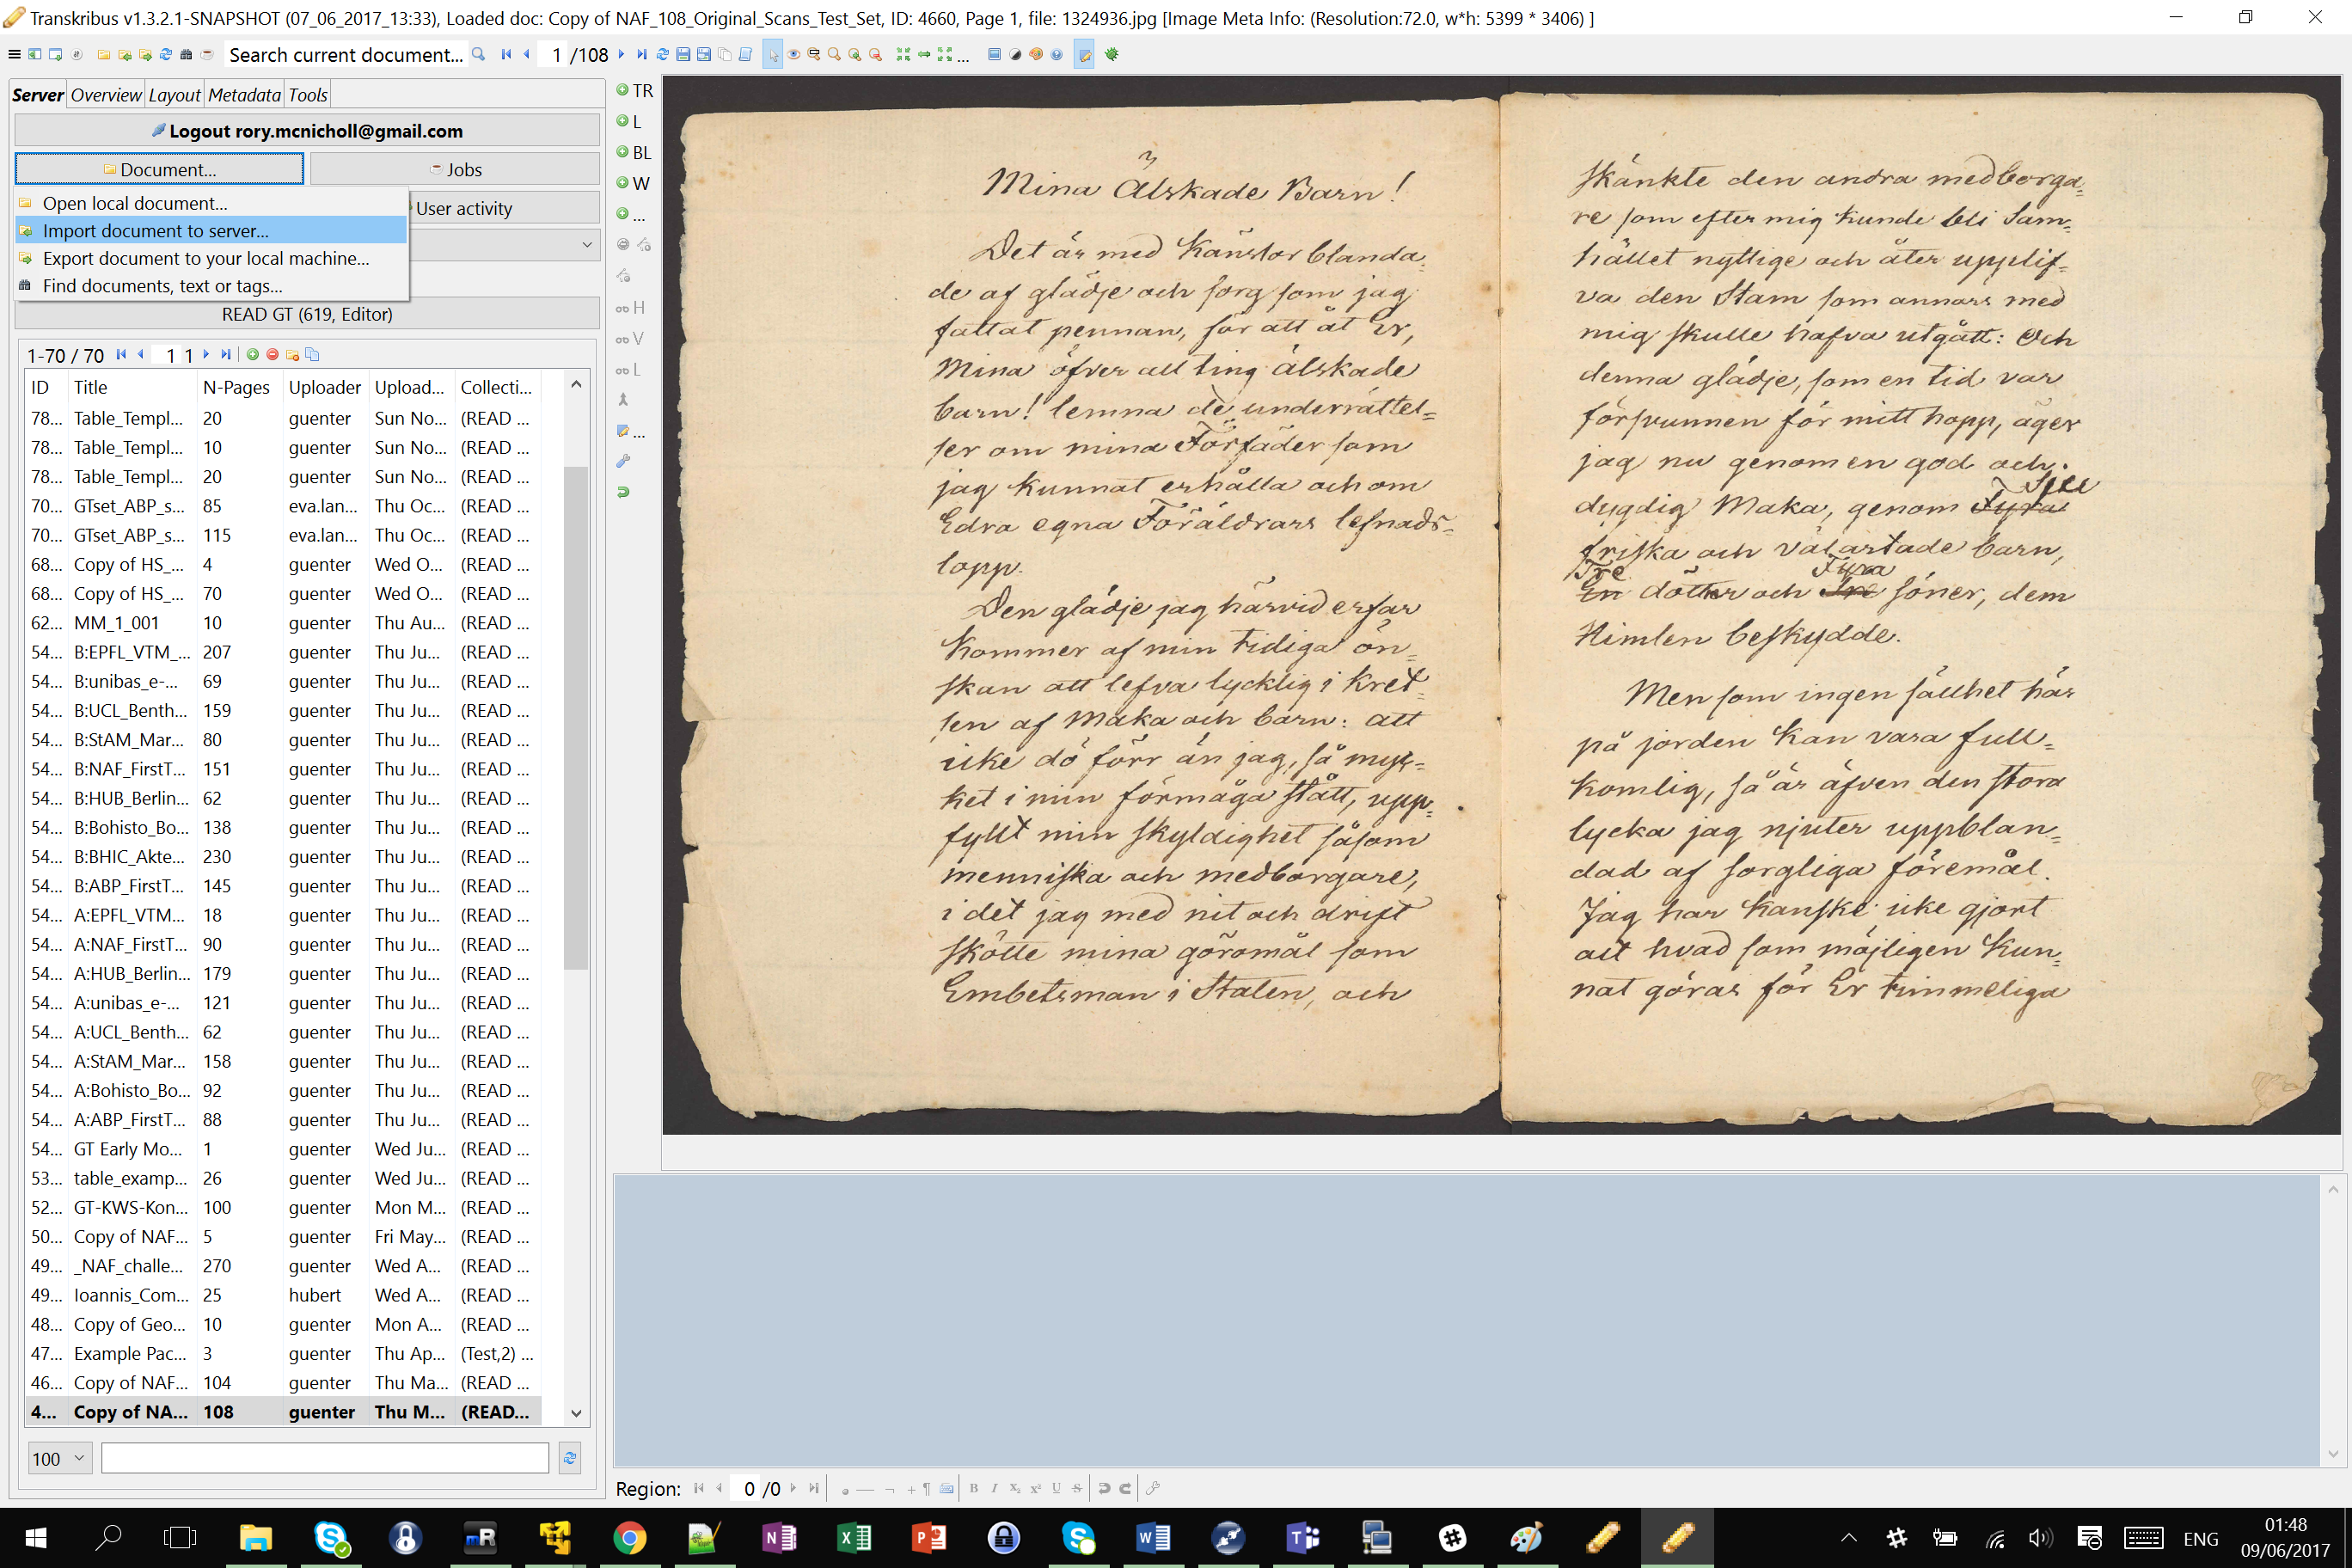 Transkribus v1.3.2.1-SNAPSHOT (07_06_2017_13:33), Loaded doc: Copy of NAF_108_Original_Scans_Test_Set, ID: 4660, Page 1, file: 1324936.jpg [Image Meta Info: (Resolution:72.0, w*h: 5399 * 3406) ]
Search current document... 1 /108 ...
Server Overview Layout Metadata Tools
Logout rory.mcnicholl@gmail.com
Document... Jobs
Open local document... User activity
Import document to server...
Export document to your local machine...
Find documents, text or tags...
READ GT (619, Editor)
1-70 / 70 1 1
ID Title N-Pages Uploader Upload... Collecti...
78... Table_Templ... 20 guenter Sun No... (READ ...
78... Table_Templ... 10 guenter Sun No... (READ ...
78... Table_Templ... 20 guenter Sun No... (READ ...
70... GTset_ABP_s... 85 eva.lan... Thu Oc... (READ ...
70... GTset_ABP_s... 115 eva.lan... Thu Oc... (READ ...
68... Copy of HS_... 4 guenter Wed O... (READ ...
68... Copy of HS_... 70 guenter Wed O... (READ ...
62... MM_1_001 10 guenter Thu Au... (READ ...
54... B:EPFL_VTM_... 207 guenter Thu Ju... (READ ...
54... B:unibas_e-... 69 guenter Thu Ju... (READ ...
54... B:UCL_Benth... 159 guenter Thu Ju... (READ ...
54... B:StAM_Mar... 80 guenter Thu Ju... (READ ...
54... B:NAF_FirstT... 151 guenter Thu Ju... (READ ...
54... B:HUB_Berlin... 62 guenter Thu Ju... (READ ...
54... B:Bohisto_Bo... 138 guenter Thu Ju... (READ ...
54... B:BHIC_Akte... 230 guenter Thu Ju... (READ ...
54... B:ABP_FirstT... 145 guenter Thu Ju... (READ ...
54... A:EPFL_VTM... 18 guenter Thu Ju... (READ ...
54... A:NAF_FirstT... 90 guenter Thu Ju... (READ ...
54... A:HUB_Berlin... 179 guenter Thu Ju... (READ ...
54... A:unibas_e-... 121 guenter Thu Ju... (READ ...
54... A:UCL_Benth... 62 guenter Thu Ju... (READ ...
54... A:StAM_Mar... 158 guenter Thu Ju... (READ ...
54... A:Bohisto_Bo... 92 guenter Thu Ju... (READ ...
54... A:ABP_FirstT... 88 guenter Thu Ju... (READ ...
54... GT Early Mo... 1 guenter Wed Ju... (READ ...
53... table_examp... 26 guenter Wed Ju... (READ ...
52... GT-KWS-Kon... 100 guenter Mon M... (READ ...
50... Copy of NAF... 5 guenter Fri May... (READ ...
49... _NAF_challe... 270 guenter Wed A... (READ ...
49... Ioannis_Com... 25 hubert Wed A... (READ ...
48... Copy of Geo... 10 guenter Mon A... (READ ...
47... Example Pac... 3 guenter Thu Ap... (Test,2) ...
46... Copy of NAF... 104 guenter Thu Ma... (READ ...
4... Copy of NA... 108 guenter Thu M... (READ...
100
TR
L
BL
W
...
H
V
L
...
Mina Älskade Barn!
Det är med Känslor blanda-
de af glädje och sorg som jag
fattat pennan, för att åt Er,
Mina öfver allting älskade
barn! lemna de underrättel=
ser om mina Förfäder som
jag kunnat erhålla och om
Edra egna Föräldrars lefnads=
lopp.
Den glädje jag härvid erfar
kommer af min tidiga ön=
skan att lefva lycklig i kret=
sen af Maka och barn: att
icke dö förr än jag, så myc=
ket i min förmåga stått, upp=
fyllt min skyldighet såsom
menniska och medborgare,
i det jag med nit och drift
skötte mina göromål som
Embetsman i Staten, och
skänkte den andra medborga=
re som efter mig kunde bli Sam=
hället nyttige och åter upplif=
va den Stam som annars med
mig skulle hafva utgått: Och
denna glädje, som en tid var
försvunnen för mitt hopp, äger
jag nu genom en god och
dygdig Maka, genom Fyra
friska och välartade barn,
Tre Fyra
En dötter och Tre söner, dem
Himlen beskydde.
Men som ingen sällhet här
på jorden kan vara full=
komlig, så är äfven den stora
lycka jag njuter uppblan=
dad af sorgliga föremål.
Jag har kanske icke gjort
allt hvad som möjligen kun=
nat göras för Er timmeliga
Region: 0 /0 B I X₂ X² U S
ENG 01:48
09/06/2017